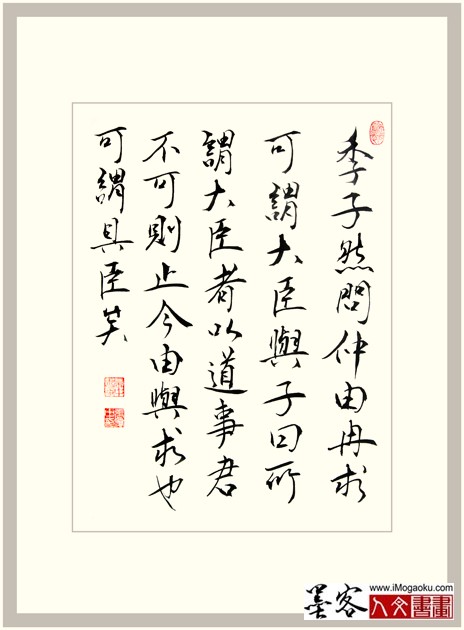 季子然問仲由冉求
可謂大臣與子曰所
謂大臣者以道事君
不可則止今由與求也
可謂具臣矣
www.iMogaoku.com
墨客
人文書畫